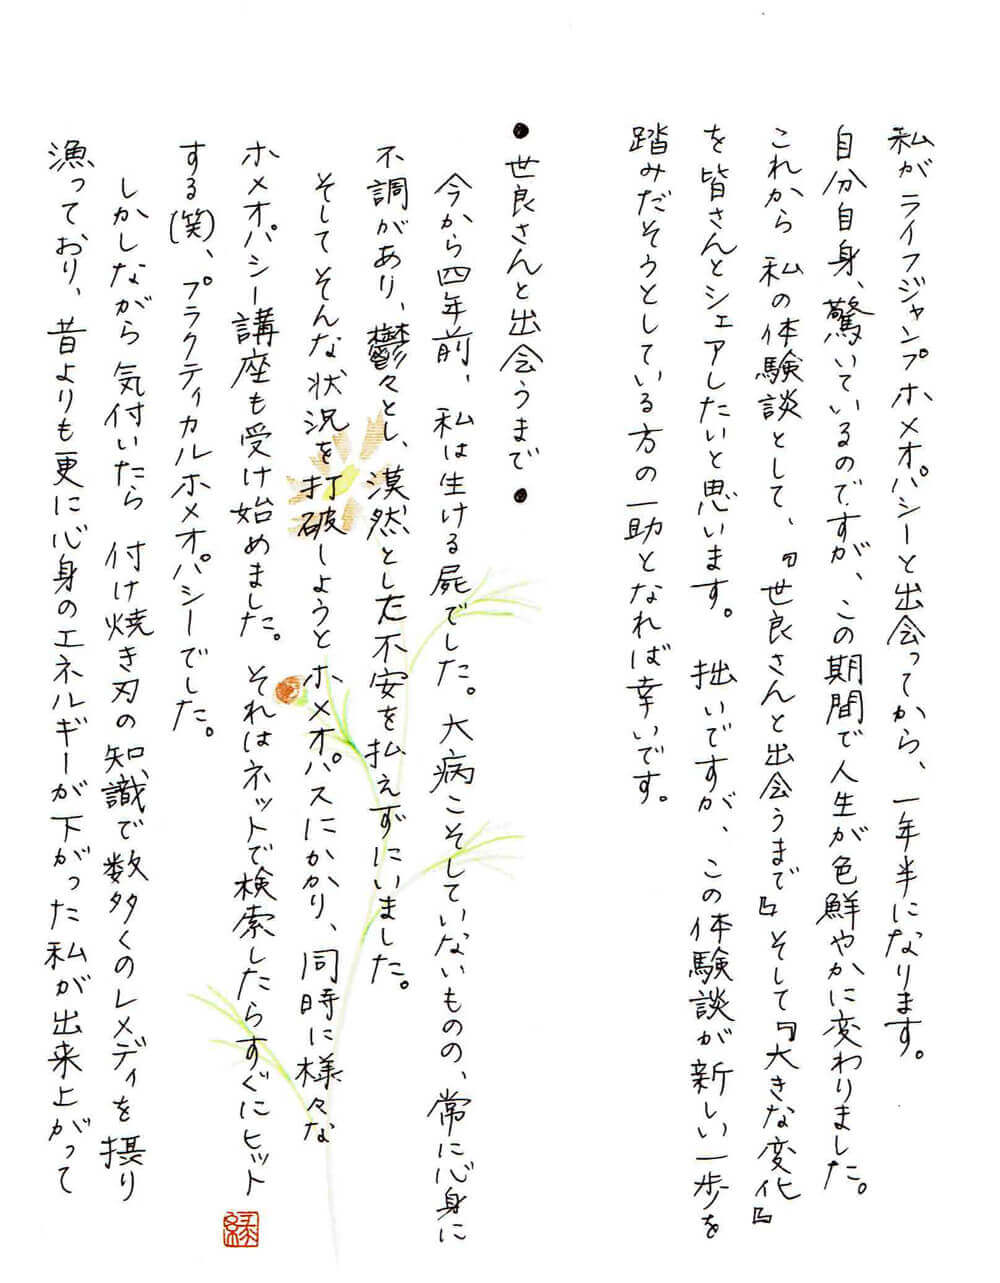 私がライフジャンプホメオパシーと出会ってから、一年半になります。
自分自身、驚いているのですが、この期間で人生が色鮮やかに変わりました。
これから私の体験談として、『世良さんと出会うまで』そして『大きな変化』
を皆さんとシェアしたいと思います。拙いですが、この体験談が新しい一歩を
踏みだそうとしている方の一助となれば幸いです。
●世良さんと出会うまで●
今から四年前、私は生ける屍でした。大病こそしていないものの、常に心身に
不調があり、鬱々とし、漠然とした不安を払えずにいました。
そしてそんな状況を打破しようとホメオパスにかかり、同時に様々な
ホメオパシー講座も受け始めました。それはネットで検索したらすぐにヒット
する(笑)、プラクティカルホメオパシーでした。
しかしながら気付いたら付け焼き刃の知識で数多くのレメディを摂り
漁っており、昔よりも更に心身のエネルギーが下がった私が出来上がって
縁